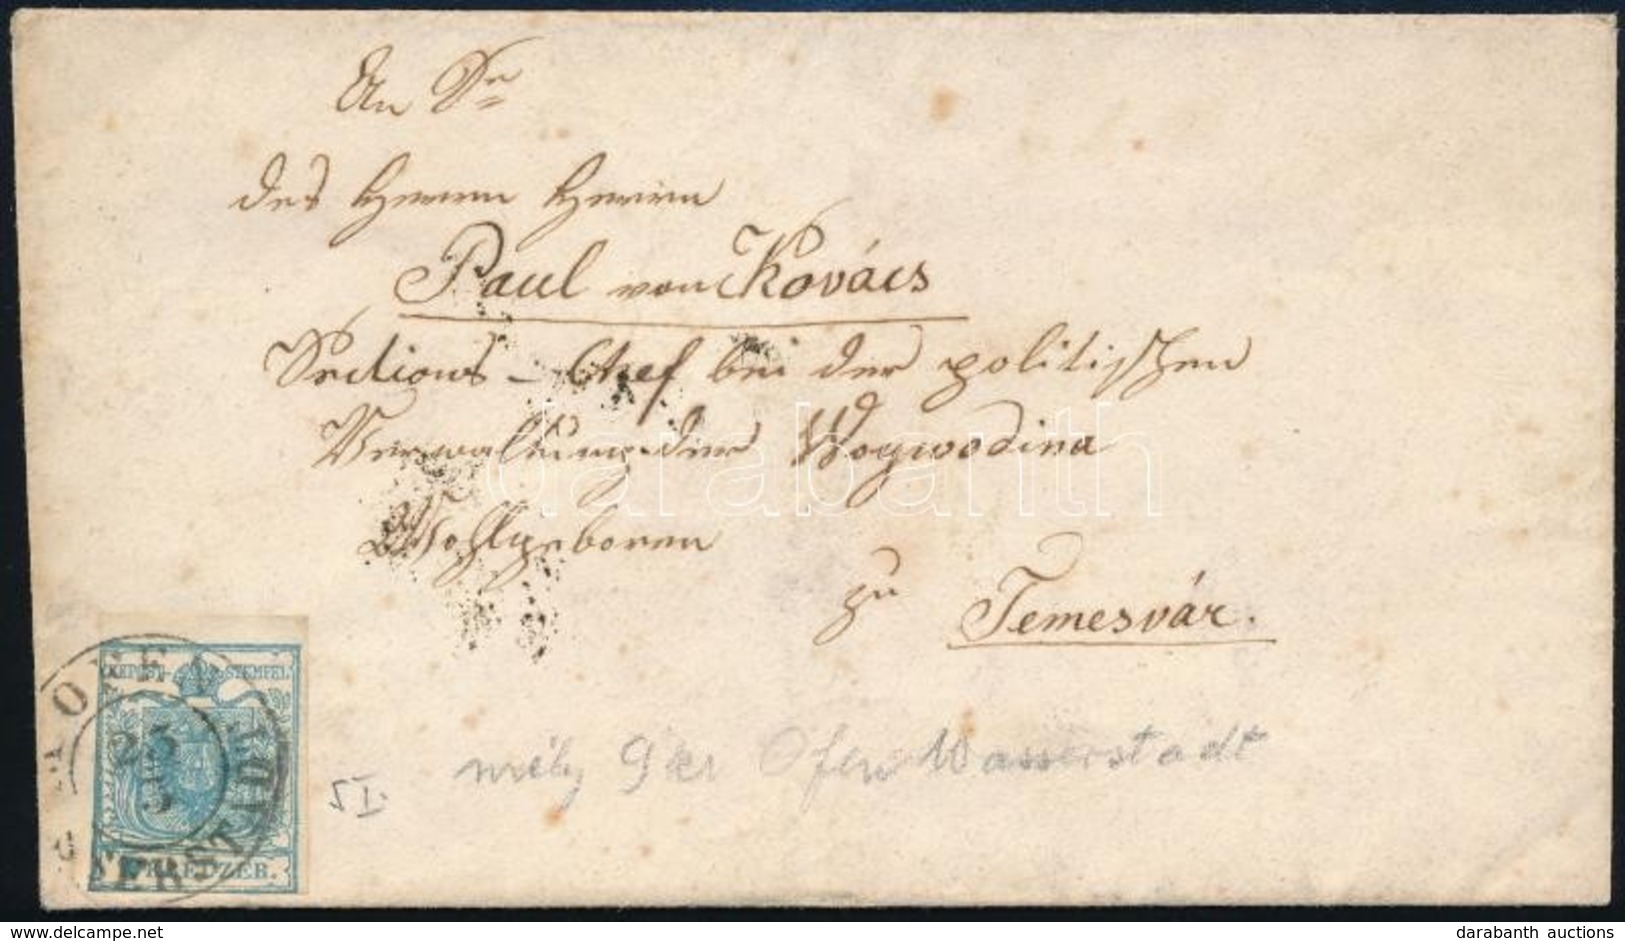 An Sr
des Herrn Herrn
Paul von Kovács
Sections-Chef bei der politischen
Verwaltung der Woywodina
Wohlgeboren
zu Temesvár.
KKPOST-STEMPEL
OFEN
23
WASSERSTADT
KREUZER.
I.
mély 9 kr Ofen Wasserstadt
darabanth
www.delcampe.net
darabanth auctions